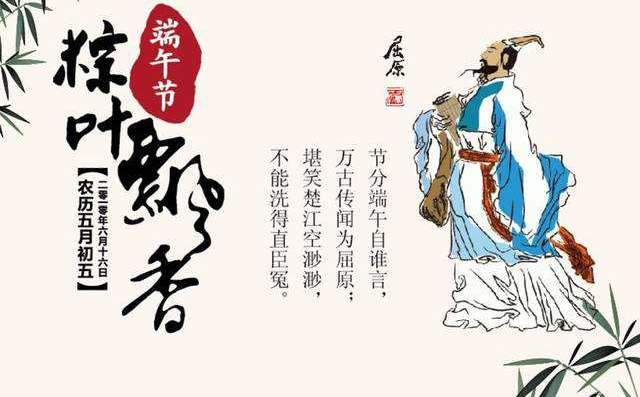 端午节
粽叶飘香
【二〇一〇年六月十六日
农历五月初五】
屈原
节分端午自谁言，
万古传闻为屈原；
堪笑楚江空渺渺，
不能洗得直臣冤。